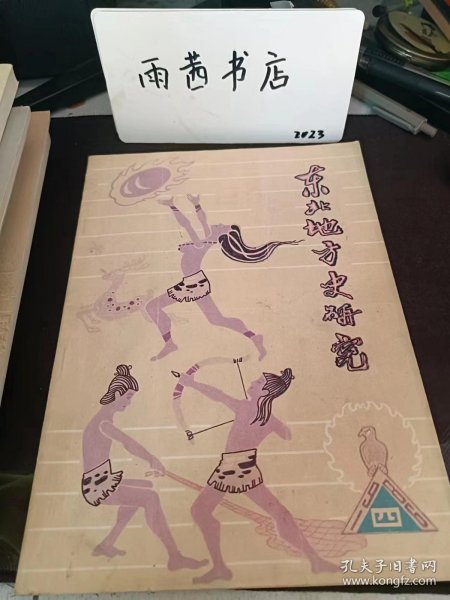 雨茜书店
2023
东北地方史研究
四
孔夫子旧书网
www.kongfz.com